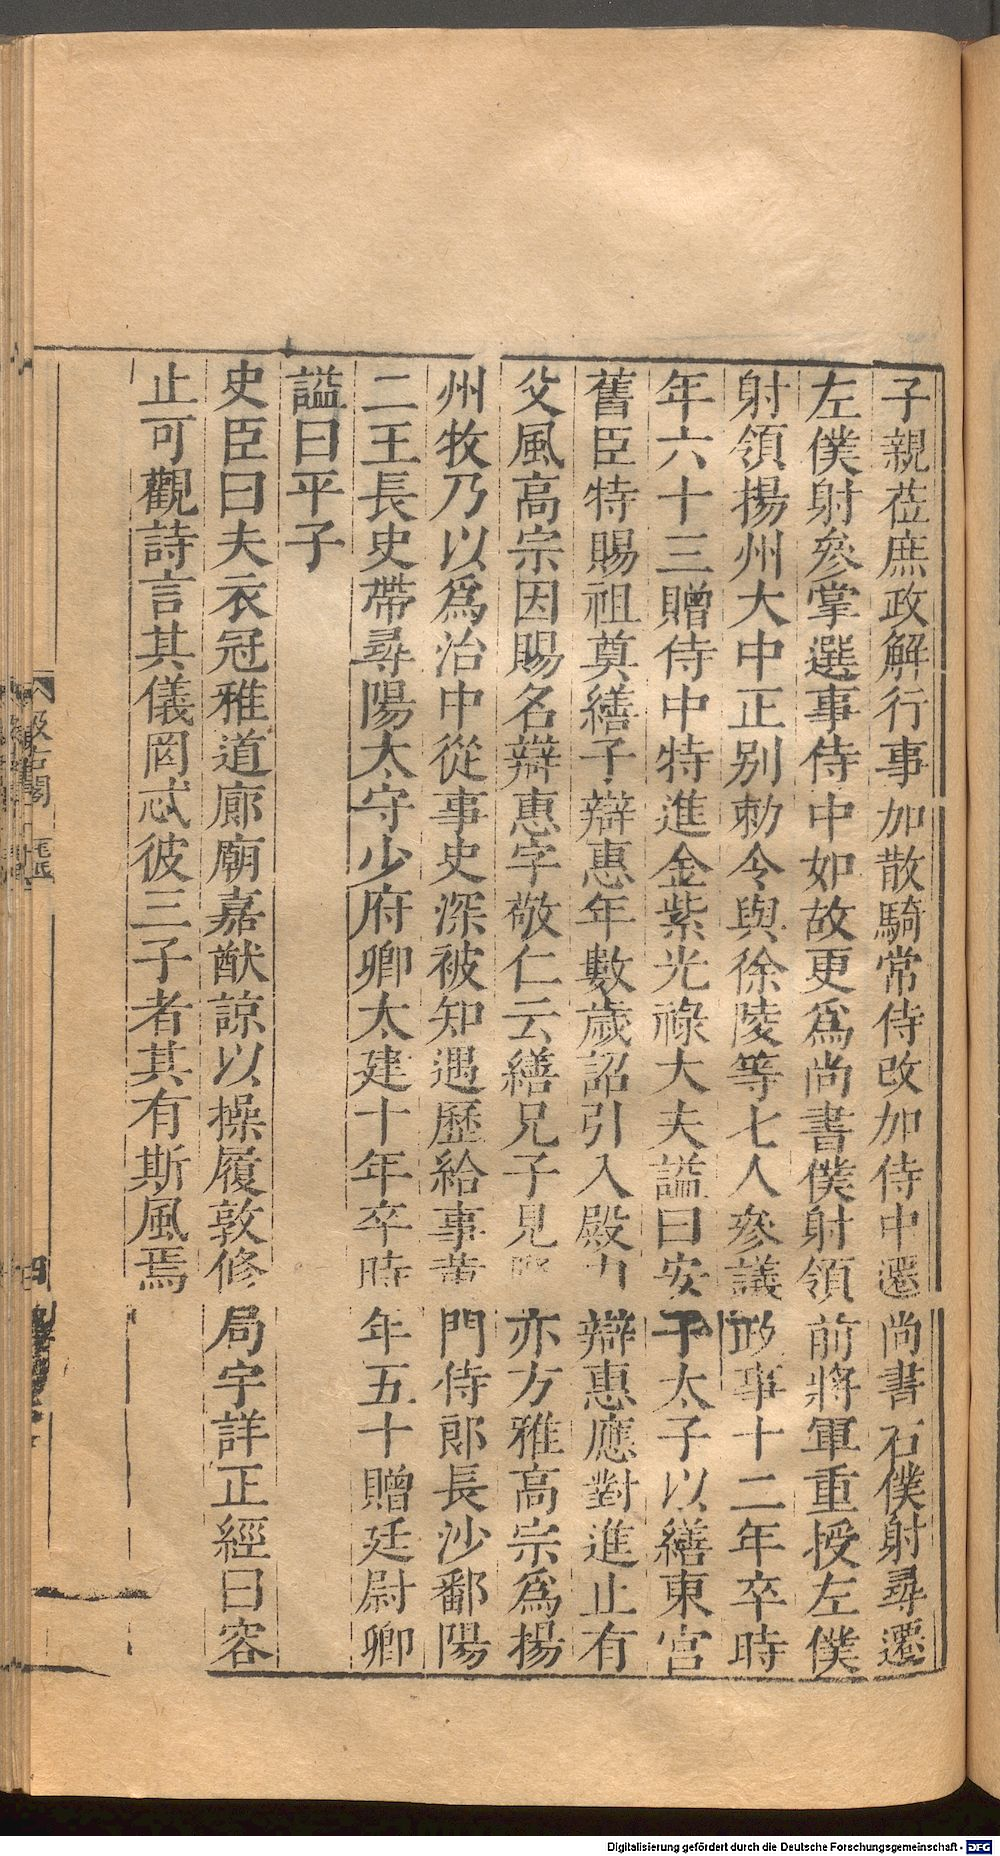 子親莅庶政解行事加散騎常侍改加侍中遷尚書右僕射尋遷
左僕射叅掌選事侍中如故更爲尚書僕射領前將軍重授左僕
射領揚州大中正别勑令與徐陵等七人叅議政事十二年卒時
年六十三贈侍中特進金紫光祿大夫謚曰安子太子以繕東宮
舊臣特賜祖奠繕子辯惠年數歲詔引入殿内辯惠應對進止有
父風高宗因賜名辯惠字敬仁云繕兄子見賢亦方雅高宗爲揚
州牧乃以爲治中從事史深被知遇歷給事黄門侍郎長沙鄱陽
二王長史帶尋陽太守少府卿太建十年卒時年五十贈廷尉卿
謚曰平子
史臣曰夫衣冠雅道廊廟嘉猷諒以操履敦修局宇詳正經曰容
止可觀詩言其儀罔忒彼三子者其有斯風焉
汲古閣
毛氏
Digitalisierung gefördert durch die Deutsche Forschungsgemeinschaft - DFG